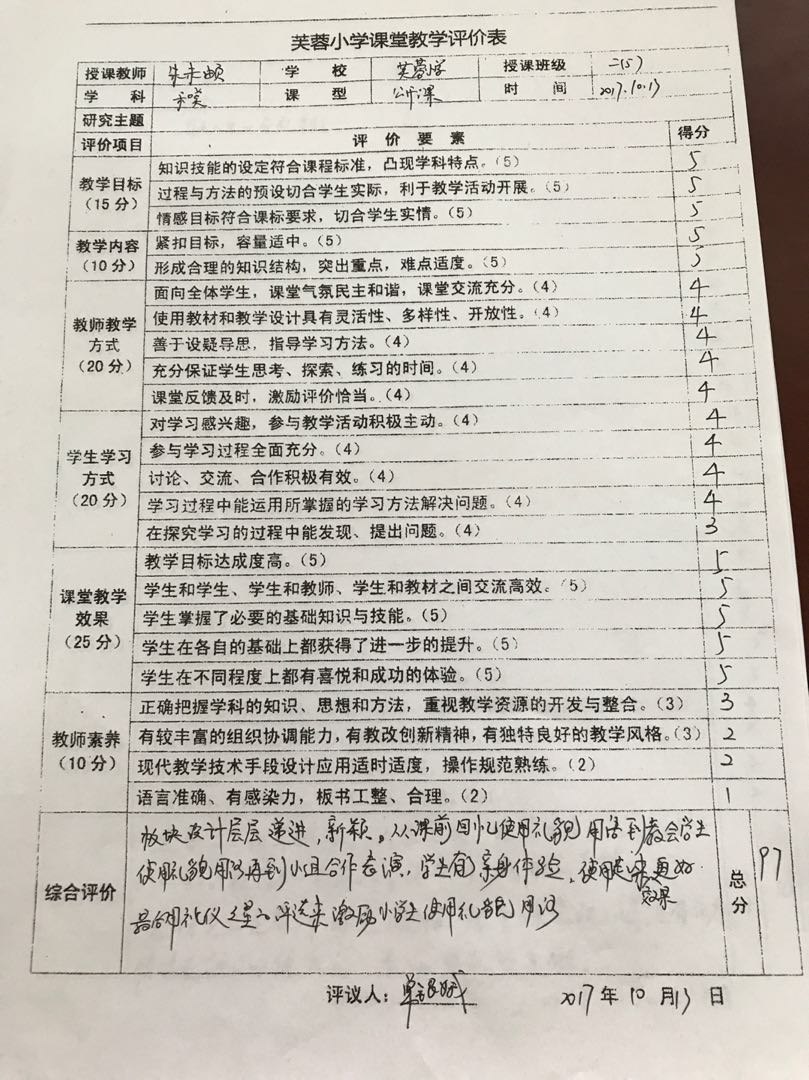 芙蓉小学课堂教学评价表
授课教师 朱未央 学 校 芙蓉小学 授课班级 二(5)
学 科 课 型 公开课 时 间 2017.10.13
研究主题
评价项目 评 价 要 素 得分
教学目标(15分)
知识技能的设定符合课程标准，凸现学科特点。(5) 5
过程与方法的预设切合学生实际，利于教学活动开展。(5) 5
情感目标符合课标要求，切合学生实情。(5) 5
教学内容(10分)
紧扣目标，容量适中。(5) 5
形成合理的知识结构，突出重点，难点适度。(5) 5
教师教学方式(20分)
面向全体学生，课堂气氛民主和谐，课堂交流充分。(4) 4
使用教材和教学设计具有灵活性、多样性、开放性。(4) 4
善于设疑导思，指导学习方法。(4) 4
充分保证学生思考、探索、练习的时间。(4) 4
课堂反馈及时，激励评价恰当。(4) 4
学生学习方式(20分)
对学习感兴趣，参与教学活动积极主动。(4) 4
参与学习过程全面充分。(4) 4
讨论、交流、合作积极有效。(4) 4
学习过程中能运用所掌握的学习方法解决问题。(4) 4
在探究学习的过程中能发现、提出问题。(4) 3
课堂教学效果(25分)
教学目标达成度高。(5) 5
学生和学生、学生和教师、学生和教材之间交流高效。(5) 5
学生掌握了必要的基础知识与技能。(5) 5
学生在各自的基础上都获得了进一步的提升。(5) 5
学生在不同程度上都有喜悦和成功的体验。(5) 5
教师素养(10分)
正确把握学科的知识、思想和方法，重视教学资源的开发与整合。(3) 3
有较丰富的组织协调能力，有教改创新精神，有独特良好的教学风格。(3) 2
现代教学技术手段设计应用适时适度，操作规范熟练。(2) 2
语言准确、有感染力，板书工整、合理。(2) 1
综合评价
板块设计层层递进，新颖。从课前回忆使用礼貌用语到教会学生
使用礼貌用语再到小组合作表演，学生有亲身体验，使用起来更好
效果
最后用礼仪之星的评选来激励小学生使用礼貌用语
总分 97
评议人： 2017年10月13日